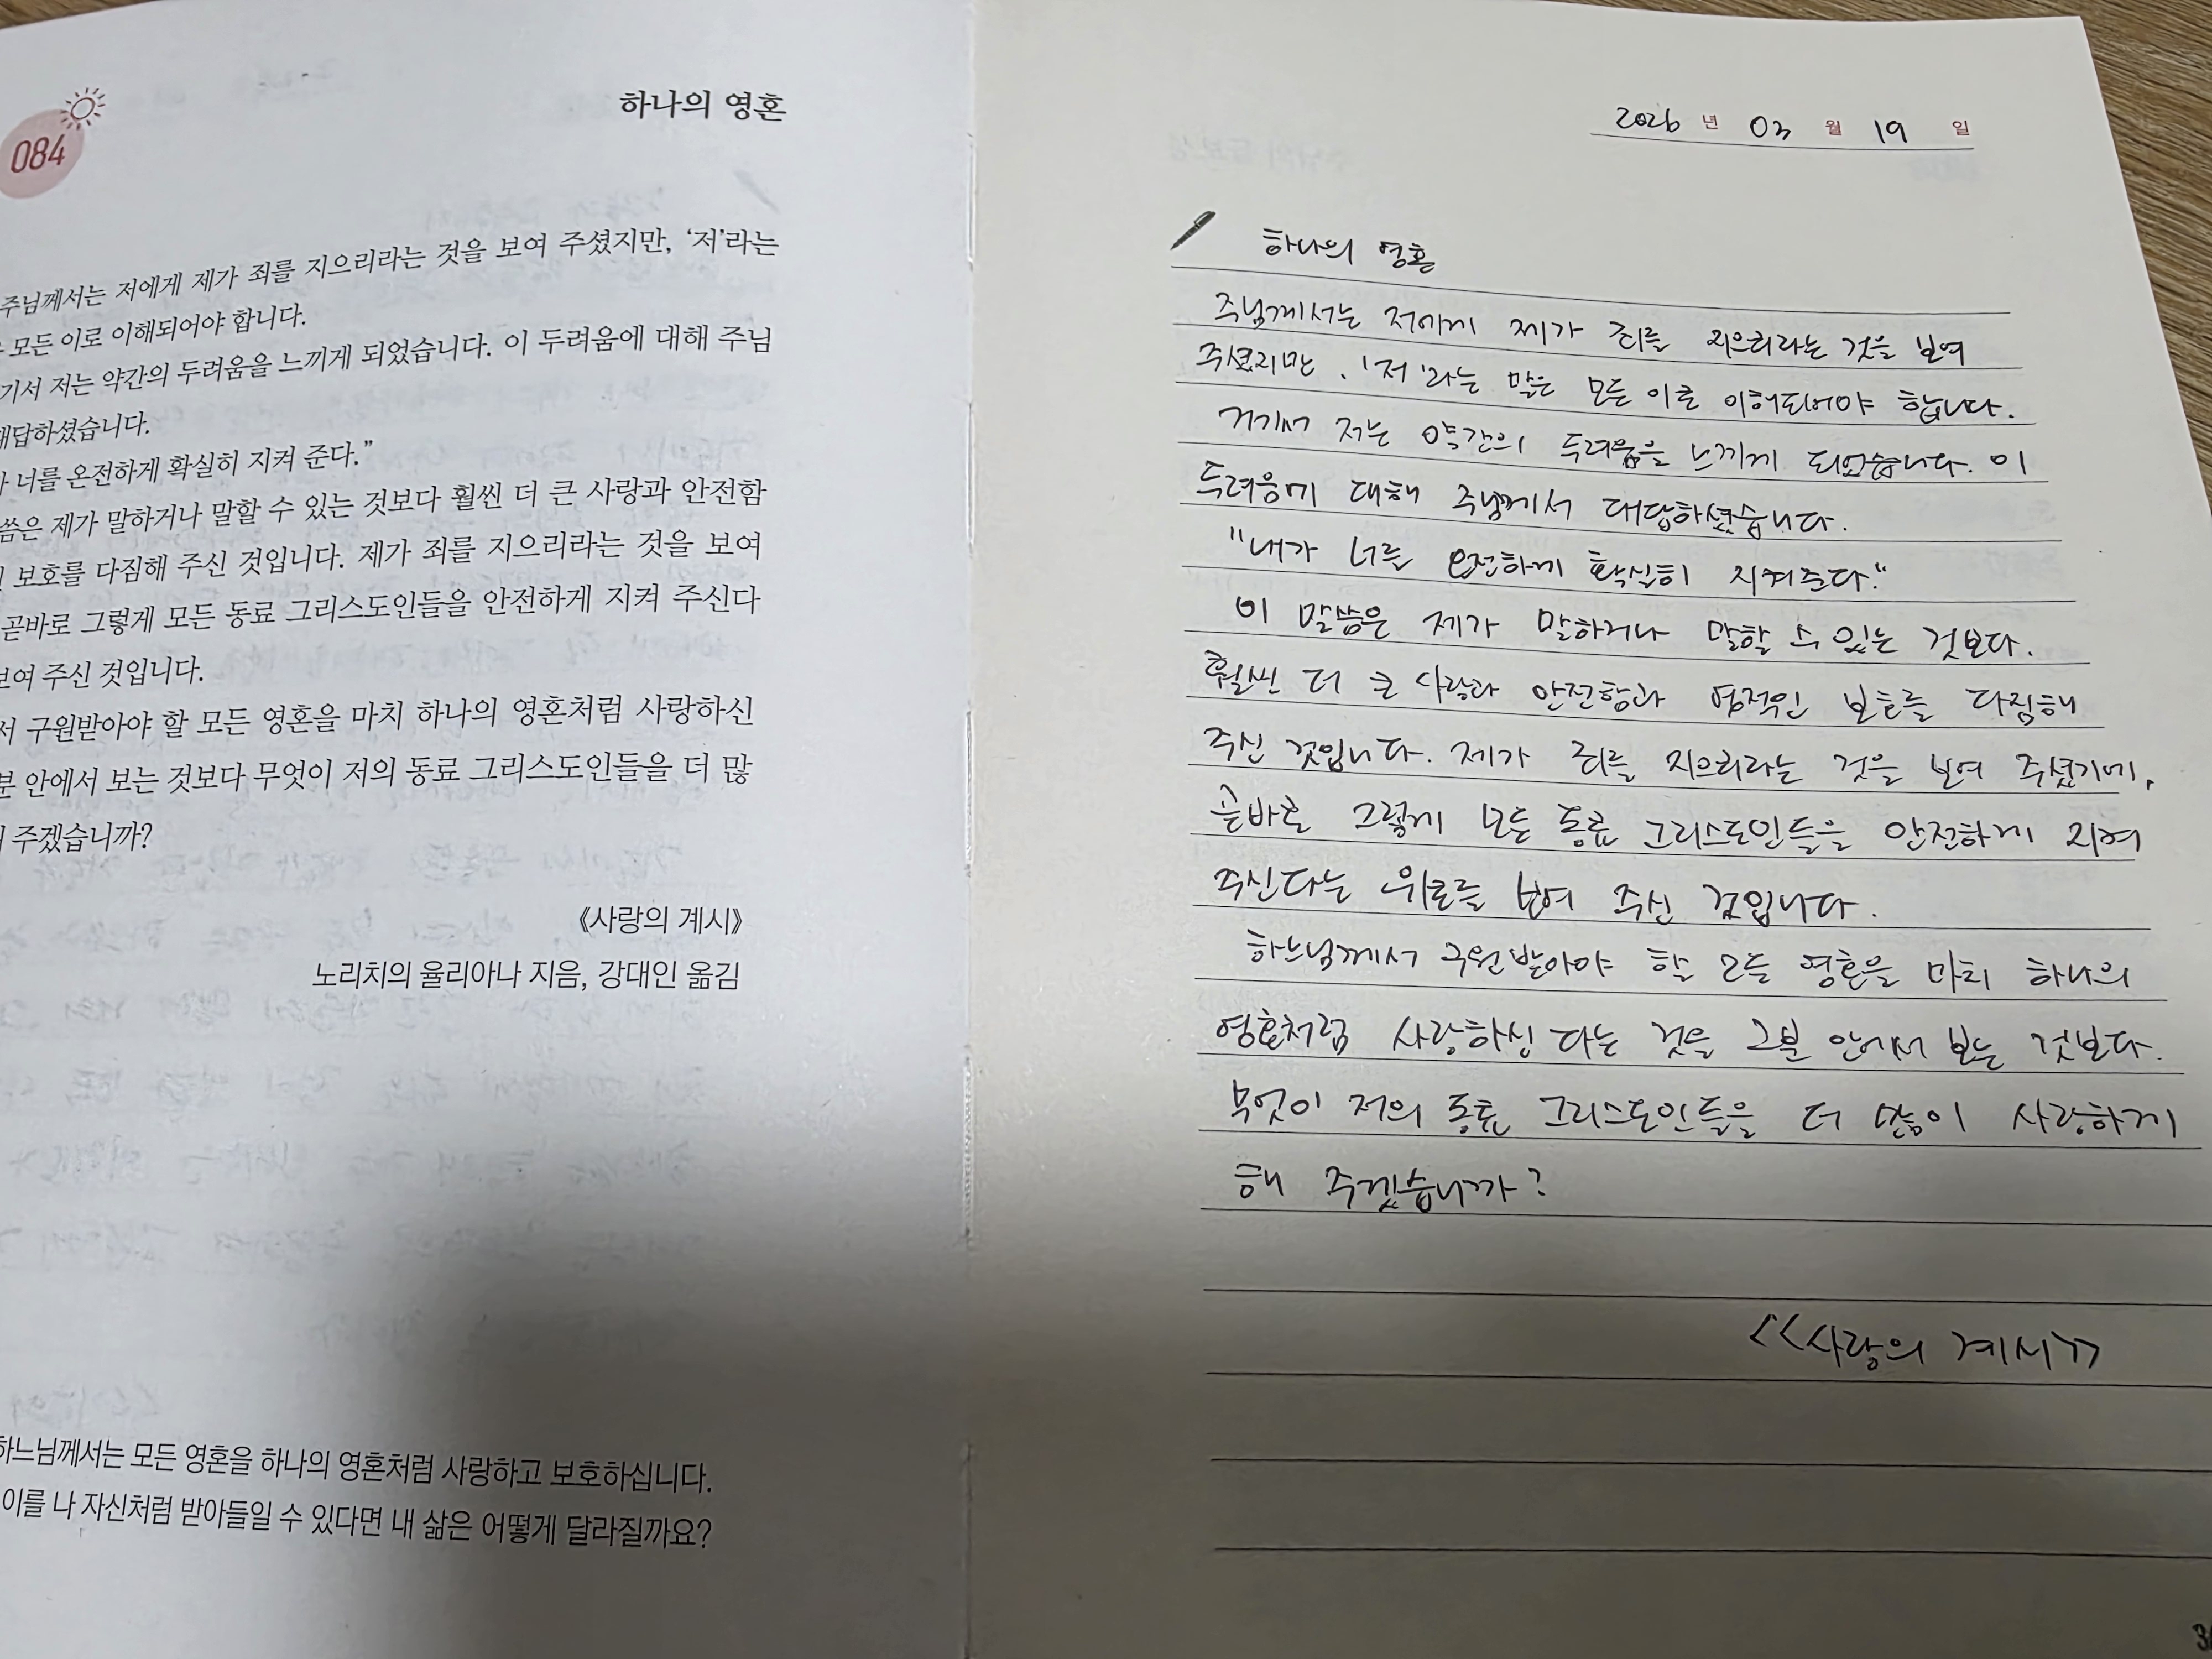 084
하나의 영혼
주님께서는 저에게 제가 죄를 지으리라는 것을 보여 주셨지만, ‘저’라는
모든 이로 이해되어야 합니다.
기서 저는 약간의 두려움을 느끼게 되었습니다. 이 두려움에 대해 주님
대답하셨습니다.
너를 온전하게 확실히 지켜 준다.”
씀은 제가 말하거나 말할 수 있는 것보다 훨씬 더 큰 사랑과 안전함
보호를 다짐해 주신 것입니다. 제가 죄를 지으리라는 것을 보여
곧바로 그렇게 모든 동료 그리스도인들을 안전하게 지켜 주신다
보여 주신 것입니다.
서 구원받아야 할 모든 영혼을 마치 하나의 영혼처럼 사랑하신
분 안에서 보는 것보다 무엇이 저의 동료 그리스도인들을 더 많
주겠습니까?
《사랑의 계시》
노리치의 율리아나 지음, 강대인 옮김
하느님께서는 모든 영혼을 하나의 영혼처럼 사랑하고 보호하십니다.
이를 나 자신처럼 받아들일 수 있다면 내 삶은 어떻게 달라질까요?
2026 년 03 월 19 일
하나의 영혼
주님께서는 저에게 제가 죄를 지으리라는 것을 보여
주셨지만, '저'라는 말은 모든 이로 이해되어야 합니다.
거기서 저는 약간의 두려움을 느끼게 되었습니다. 이
두려움에 대해 주님께서 대답하셨습니다.
"내가 너를 온전하게 확실히 지켜준다."
이 말씀은 제가 말하거나 말할 수 있는 것보다.
훨씬 더 큰 사랑과 안전함과 영적인 보호를 다짐해
주신 것입니다. 제가 죄를 지으리라는 것을 보여 주셨기에,
곧바로 그렇게 모든 동료 그리스도인들을 안전하게 지켜
주신다는 위로를 보여 주신 것입니다.
하느님께서 구원받아야 할 모든 영혼을 마치 하나의
영혼처럼 사랑하신다는 것을 그분 안에서 보는 것보다.
무엇이 저의 동료 그리스도인들을 더 많이 사랑하게
해 주겠습니까?
<<사랑의 계시>>